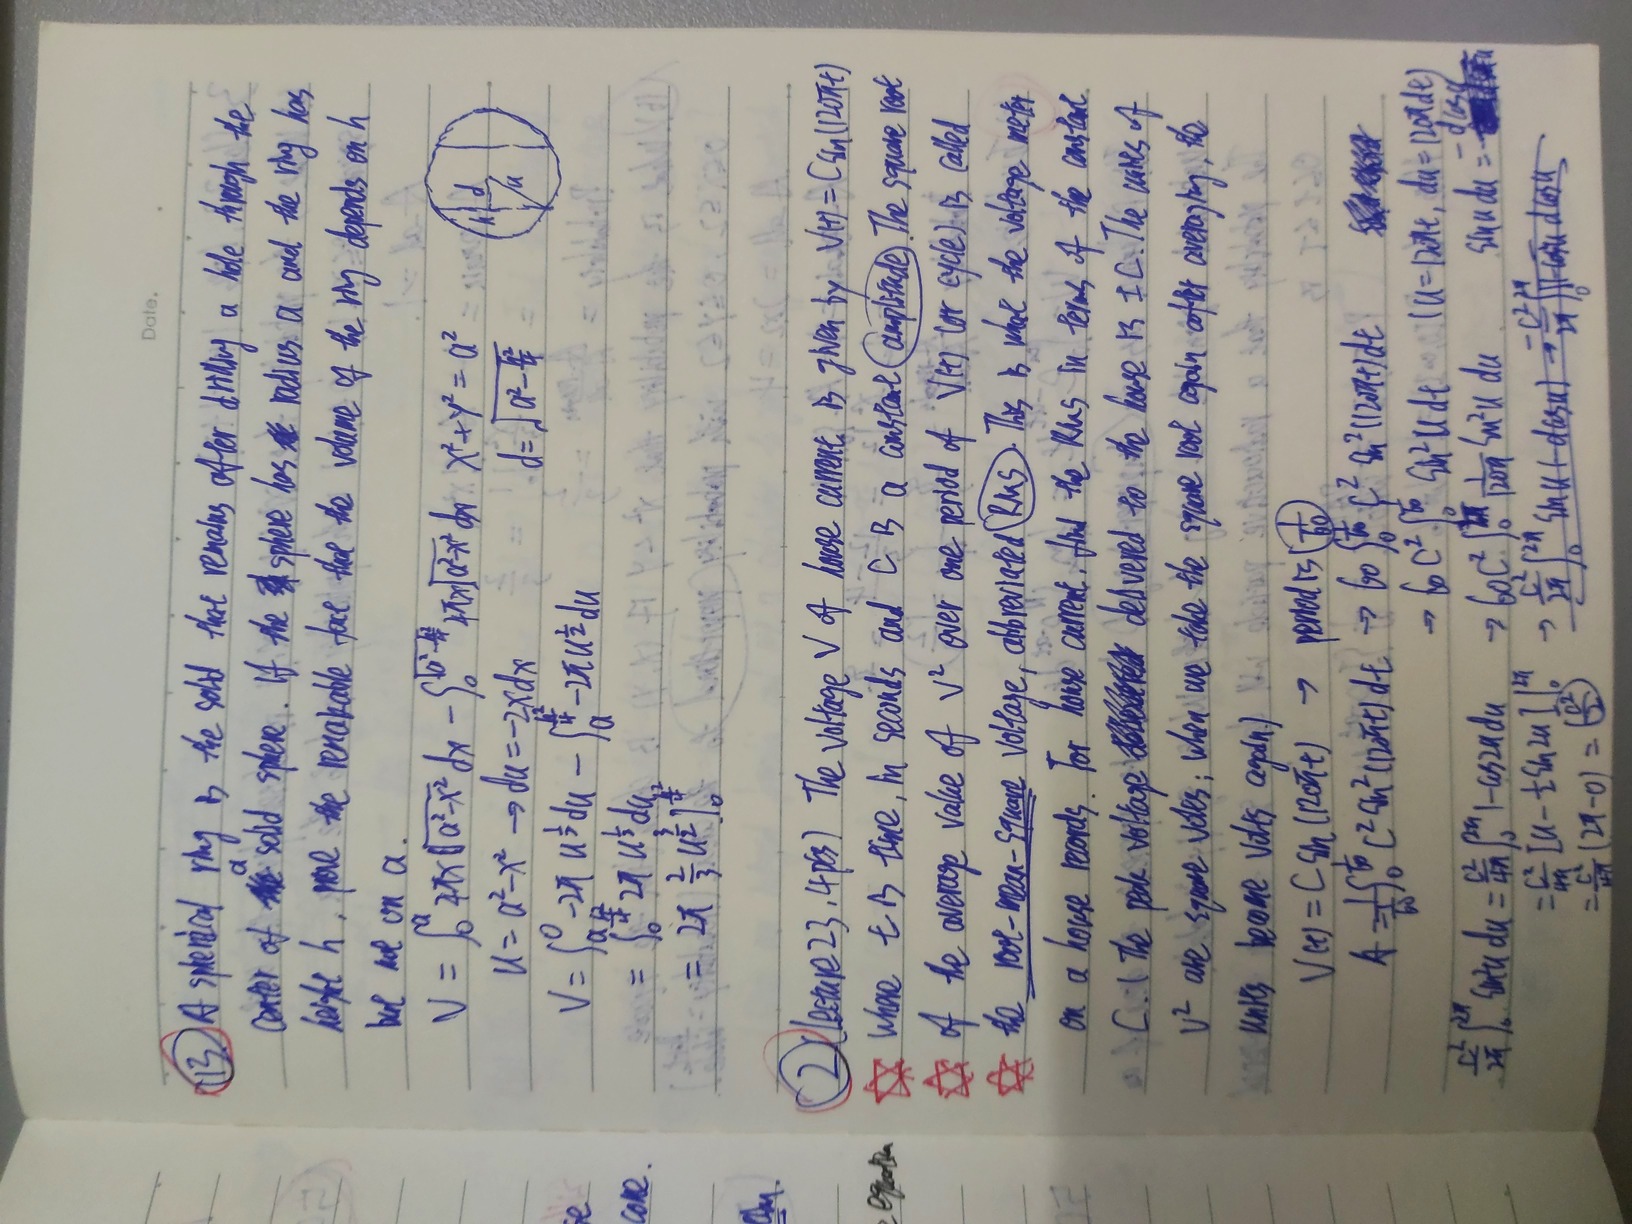 Date.
13 A spherical ring is the solid that remains after drilling a hole through the
center of a solid sphere. If the sphere has radius a and the ring has
height h, prove the remakable fact that the volume of the ring depends on h
but not on a.
V = ∫₀^a 4πx√(a²-x²) dx - ∫₀^√(a²-h²/4) 4πx√(a²-x²) dx   x²+y² = a²
u = a²-x² → du = -2xdx   d = √(a²-h²/4)
h d a
V = ∫ -2π u^½ du - ∫ -2πu^½ du
= ∫₀^(h²/4) 2π u^½ du
= 2π 2/3 u^(3/2) ]₀^(h²/4)
2 (Lecture 23, 4pts) The voltage V of house current is given by V(t) = C sin(120πt)
where t is time, in seconds and C is a constant amplitude. The square root
of the average value of V² over one period of V(t) (or cycle) is called
the root-mean-square voltage, abbreviated RMS. This is what the voltage meter
on a house records. For house current, find the RMS in terms of the constant
C. (The peak voltage delivered to the house is ±C. The units of
V² are square volts; when we take the square root again after averaging, the
units become volts again.)
V(t) = C sin(120πt) → period is 1/60
A = 1/(1/60) ∫₀^(1/60) C² sin²(120πt) dt → 60 ∫₀^(1/60) C² sin²(120πt) dt
→ 60 C² ∫₀^(1/60) sin²u dt   (u = 120πt, du = 120πdt)
C²/2π ∫₀^2π sin²u du = C²/4π ∫₀^2π 1-cos2u du → 60C² ∫₀^2π 1/120π sin²u du   sinu du = -dcosu
= C²/4π [u - ½ sin2u] |₀^2π → C²/2π ∫₀^2π sinu(-dcosu)
= C²/4π (2π-0) = C²/2